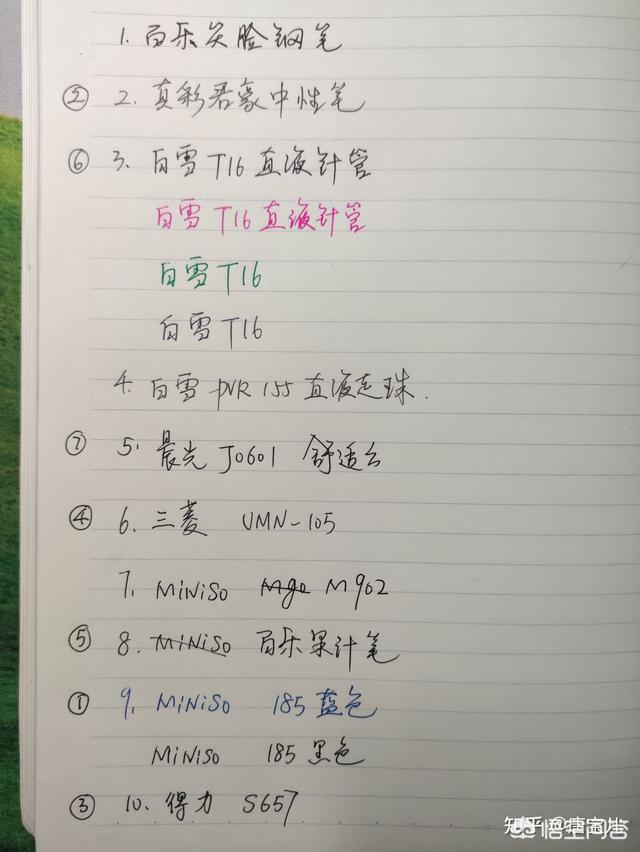 1. 百乐笑脸钢笔
② 2. 真彩君豪中性笔
⑥ 3. 白雪 T16 直液针管
白雪 T16 直液针管
白雪 T16
白雪 T16
4. 白雪 PVR 155 直液走珠.
⑦ 5. 晨光 J0601 舒适云
④ 6. 三菱 UMN-105
7. MiNiSo M902
⑤ 8. MiNiSo 百乐果汁笔
① 9. MiNiSo 185 蓝色
MiNiSo 185 黑色
③ 10. 得力 S657
知乎
悟空问答